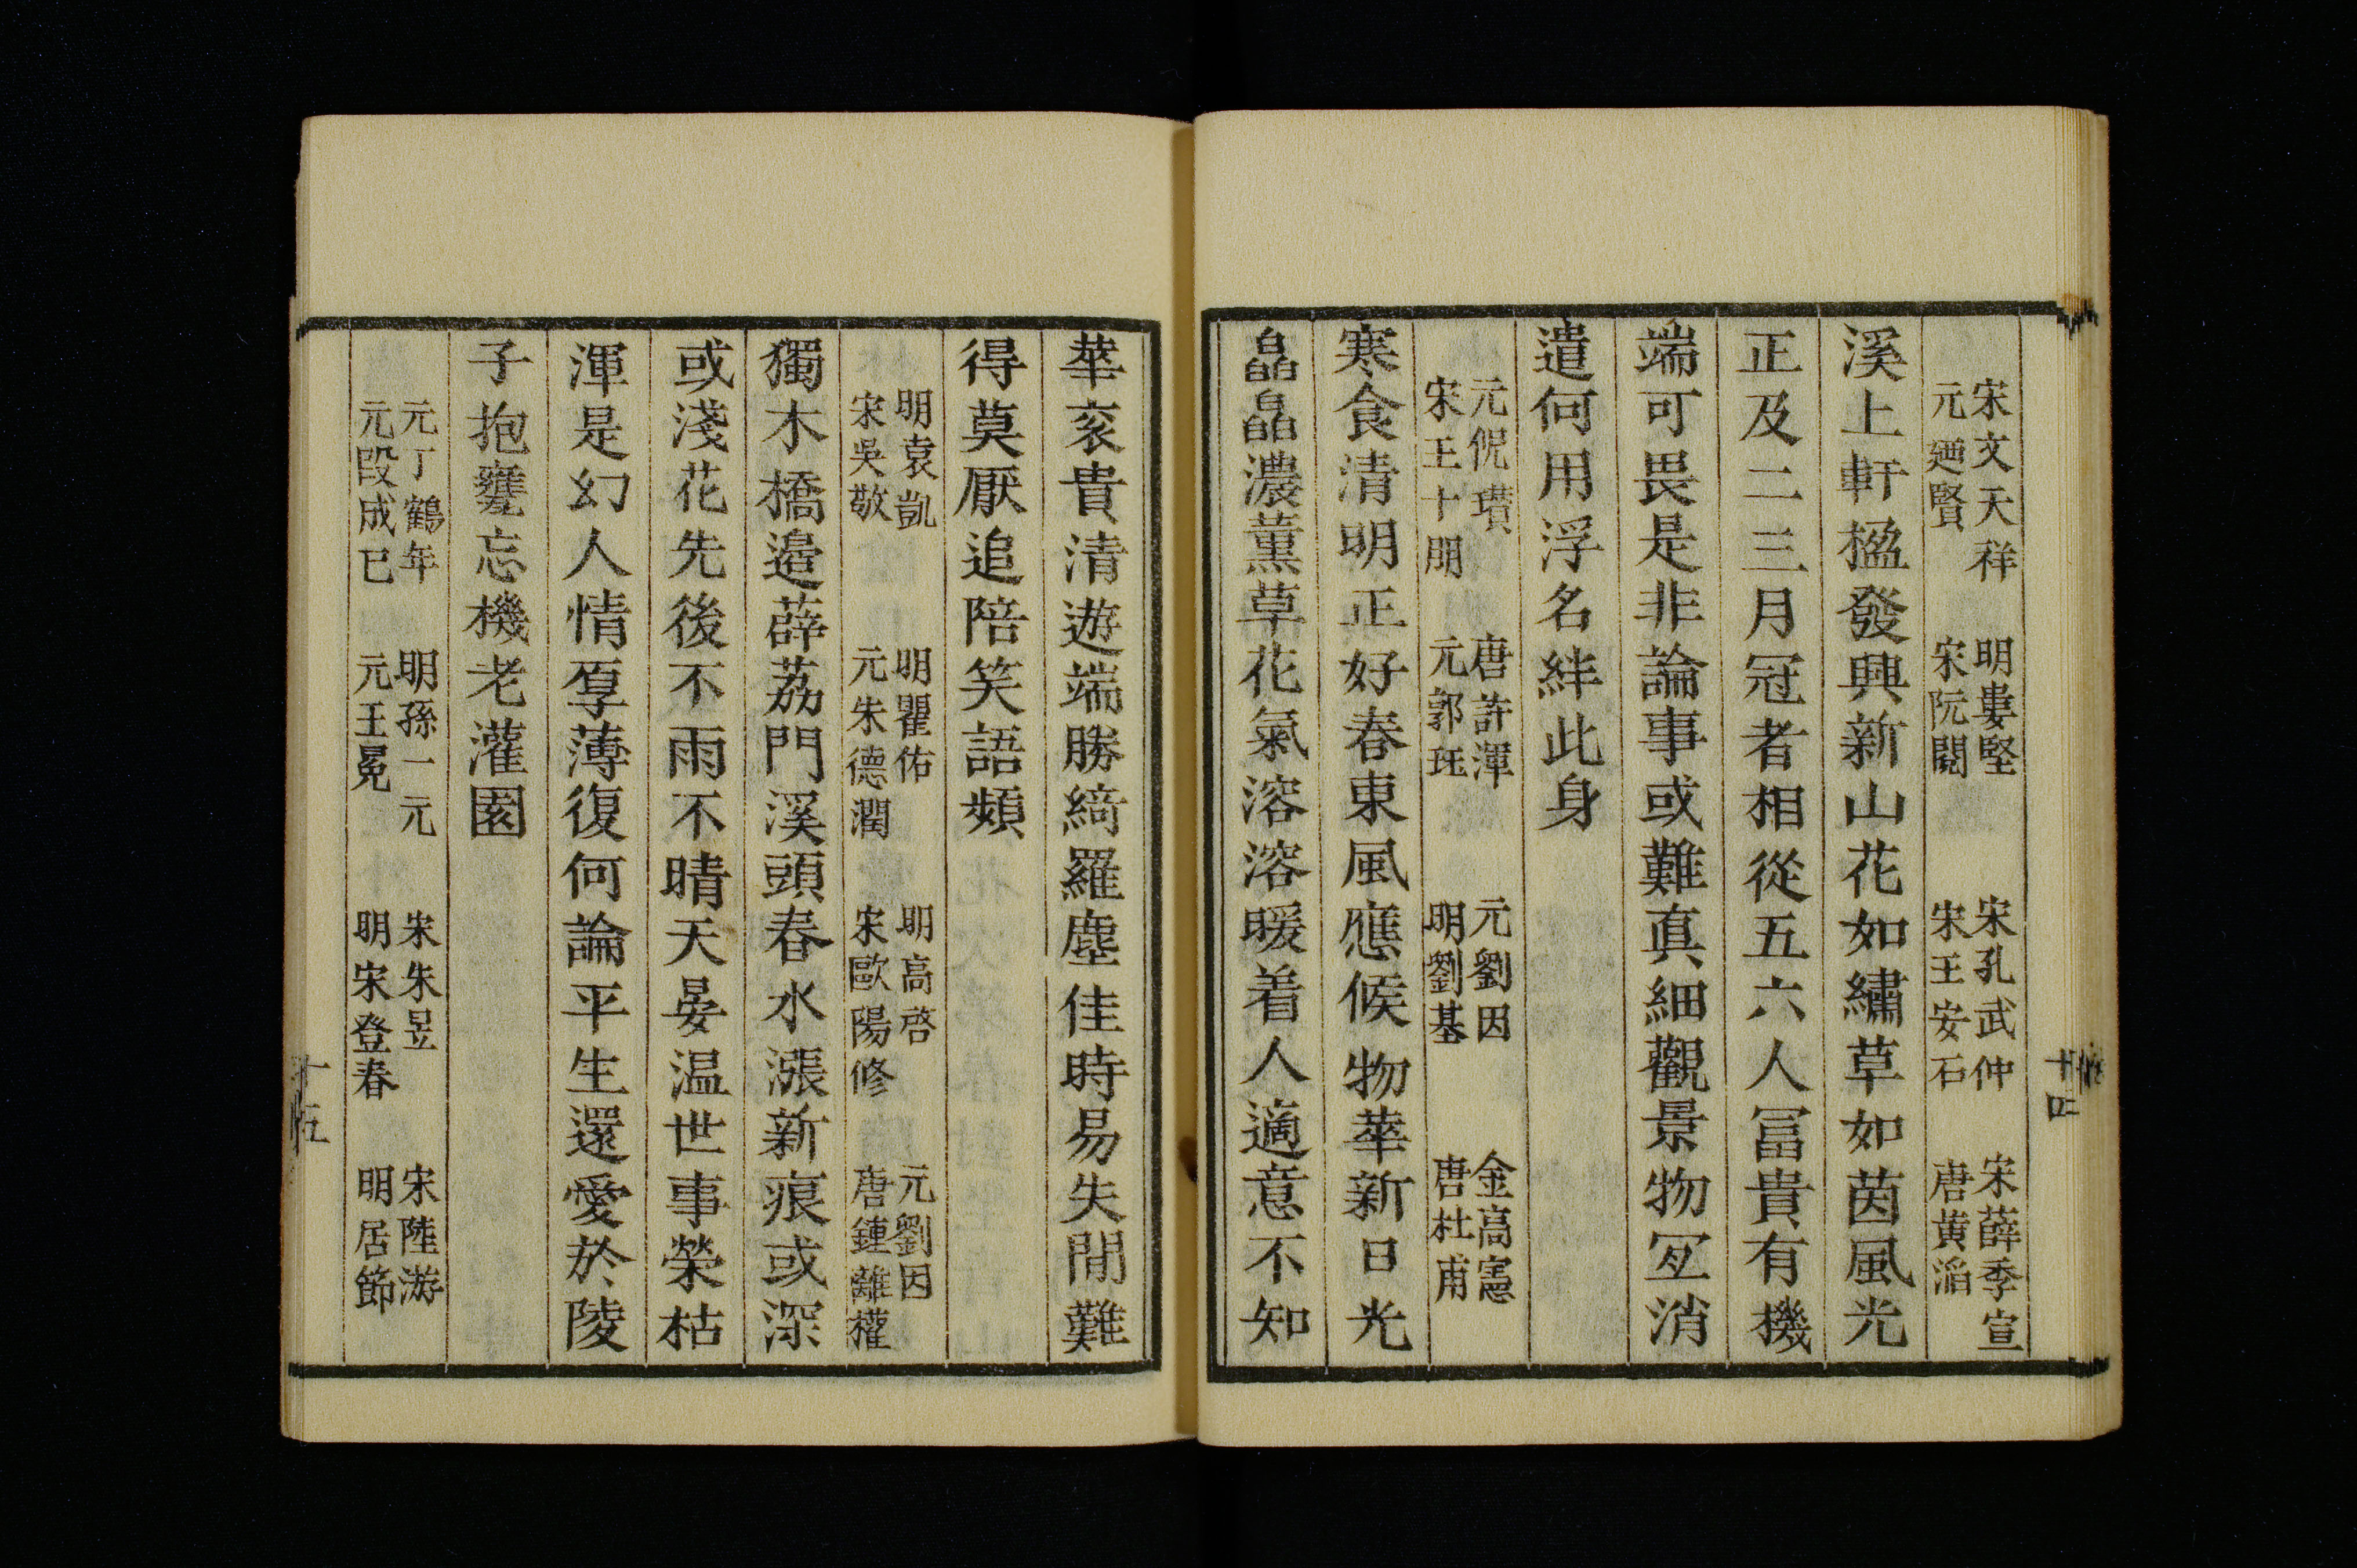 十四
宋文天祥　明婁堅　宋孔武仲　宋薛季宣
元廼賢　宋阮閱　宋王安石　唐黃滔
溪上軒楹發興新山花如繡草如茵風光
正及二三月冠者相從五六人冨貴有機
端可畏是非論事或難真細觀景物冝消
遣何用浮名絆此身
元倪瓚　唐許渾　元劉因　金高憲
宋王十朋　元郭珏　明劉基　唐杜甫
寒食清明正好春東風應候物華新日光
皛皛濃薰草花氣溶溶暖着人適意不知
華衮貴清遊端勝綺羅塵佳時易失閒難
得莫厭追陪笑語頻
明袁凱　明瞿佑　明高啓　元劉因
宋吳敬　元朱德潤　宋歐陽修　唐鍾離權
獨木橋邉薜荔門溪頭春水漲新痕或深
或淺花先後不雨不晴天晏温世事榮枯
渾是幻人情厚薄復何論平生還愛於陵
子抱甕忘機老灌園
元丁鶴年　明孫一元　宋朱昱　宋陸游
元段成已　元王冕　明宋登春　明居節
十五